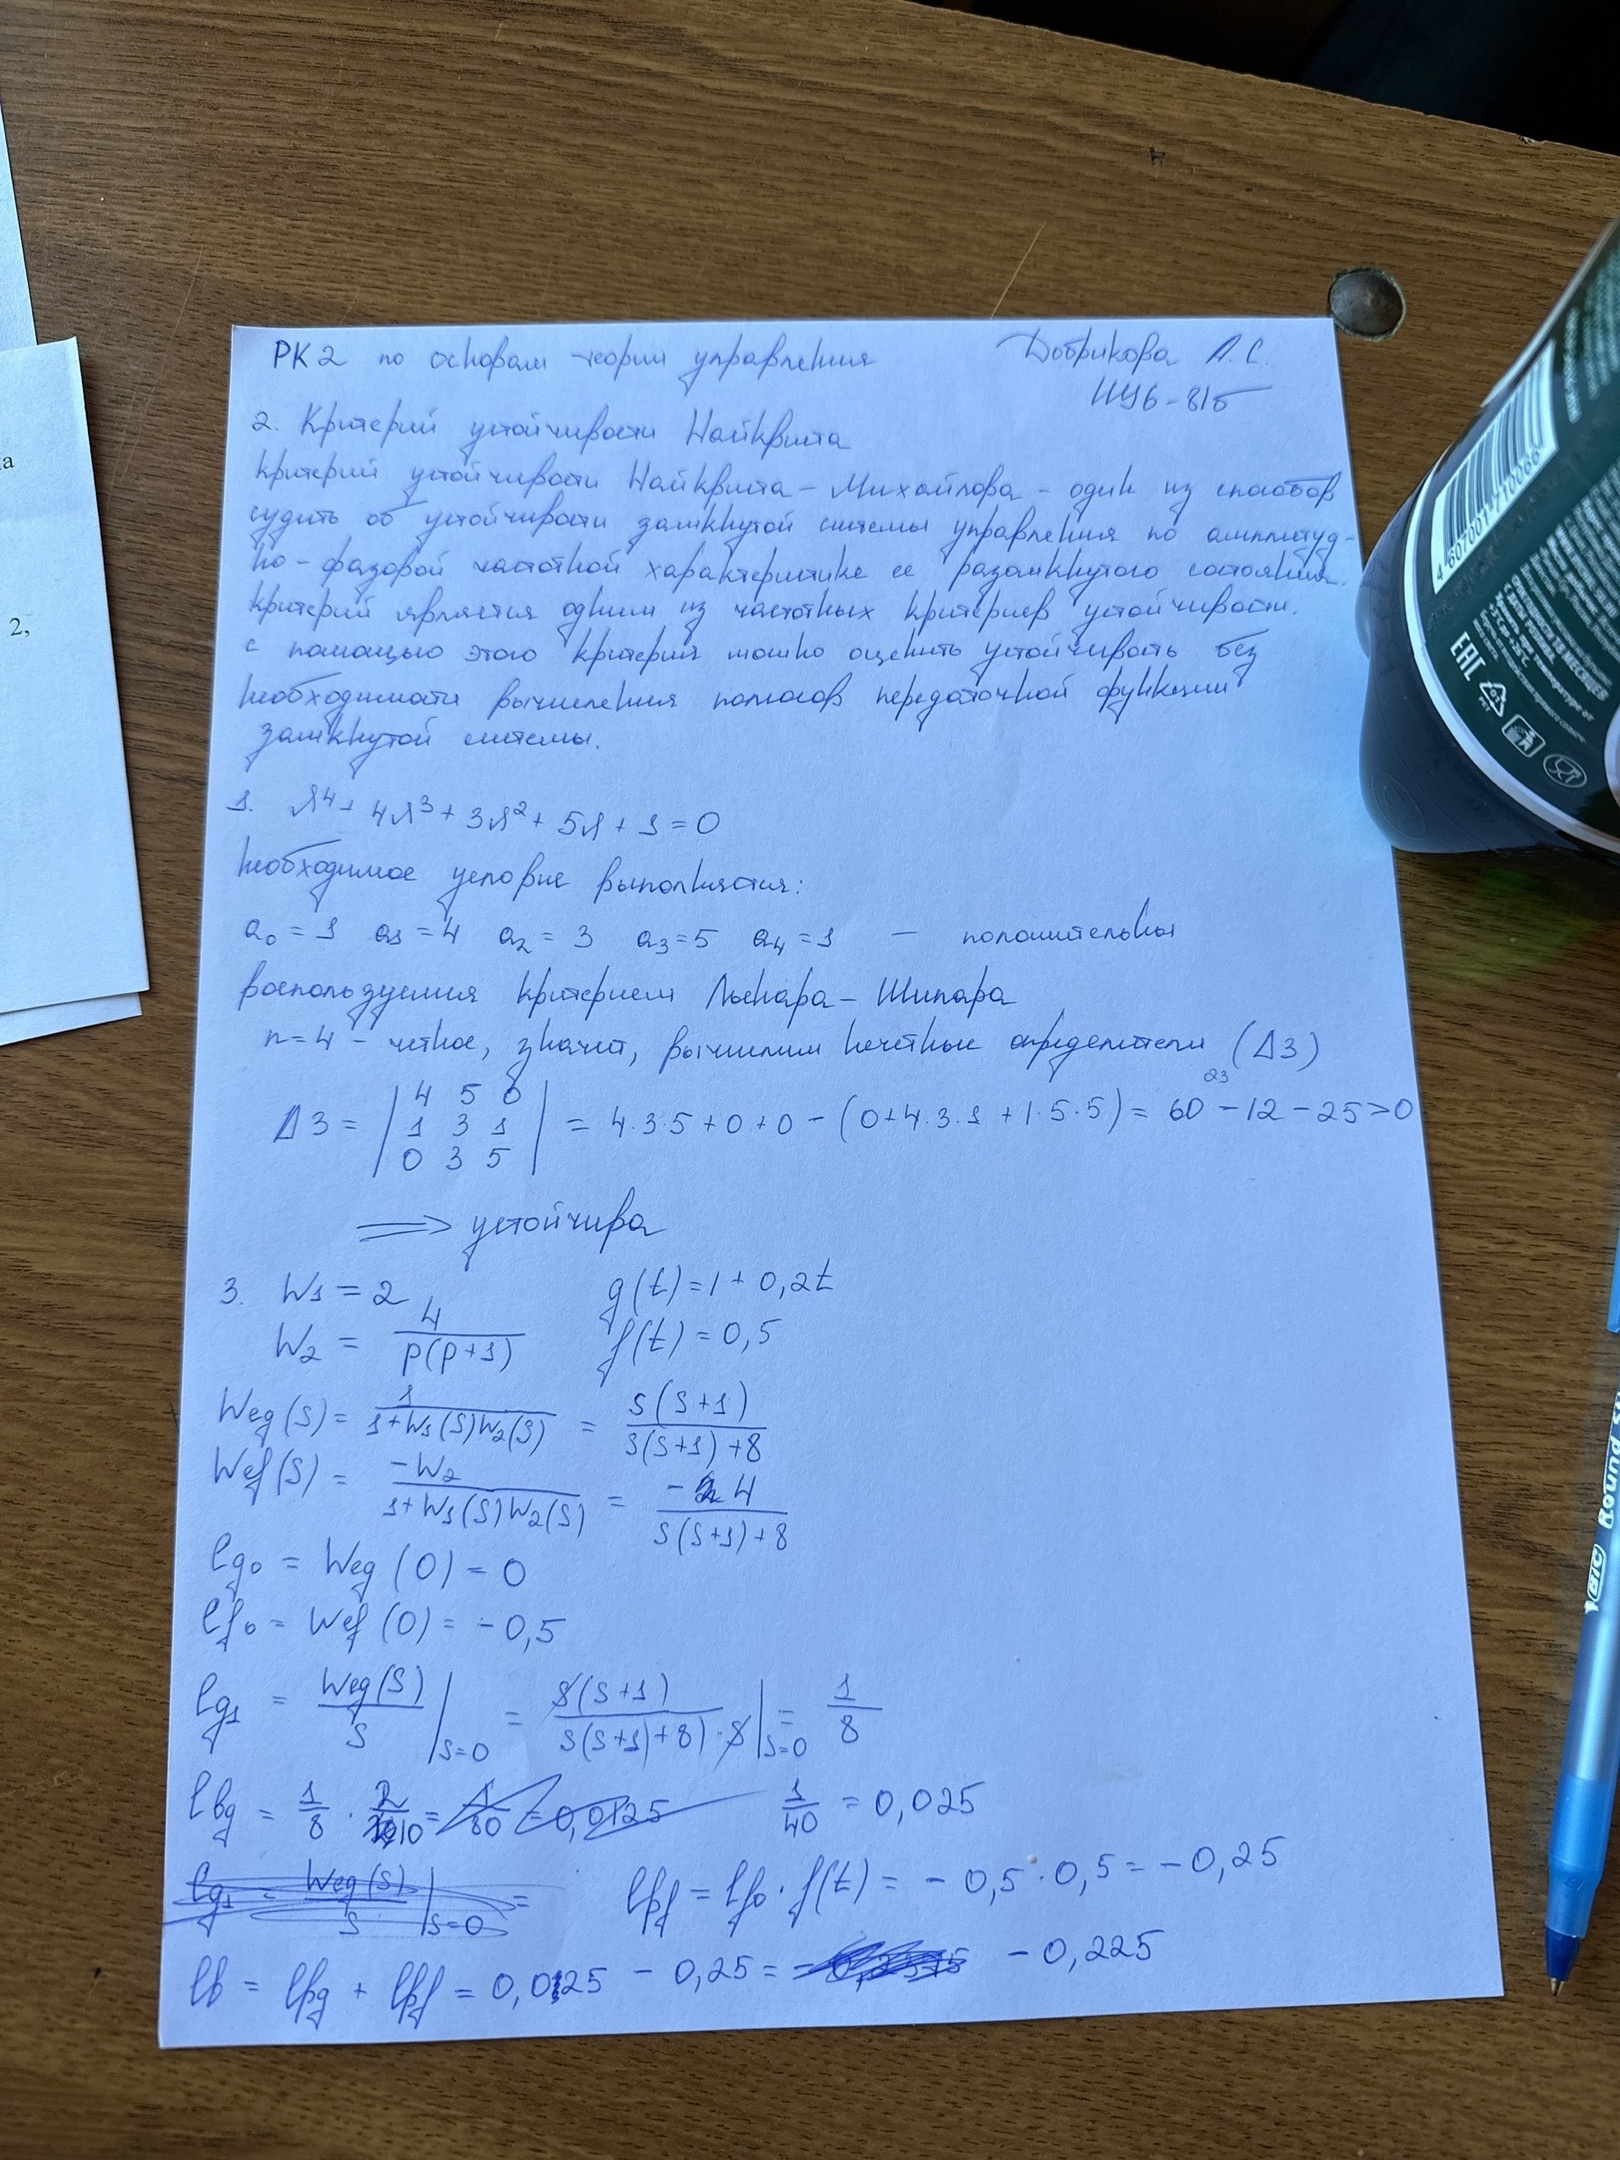 а
2,
РК 2 по основам теории управления
Добрикова А. С.
ИУ6-81Б
2. Критерий устойчивости Найквиста
Критерий устойчивости Найквиста - Михайлова - один из способов
судить об устойчивости замкнутой системы управления по амплитуд-
но-фазовой частотной характеристике ее разомкнутого состояния.
Критерий является одним из частотных критериев устойчивости.
С помощью этого критерия можно оценить устойчивость без
необходимости вычисления полюсов передаточной функции
замкнутой системы.
1. λ⁴ + 4λ³ + 3λ² + 5λ + 1 = 0
Необходимое условие выполняется:
a₀ = 1 a₁ = 4 a₂ = 3 a₃ = 5 a₄ = 1 — положительны
Воспользуемся критерием Льенара - Шипара
n = 4 - четное, значит, вычислим нечетные определители (Δ3)
Δ3 = | 4 5 0
1 3 1
0 3 5 | = 4·3·5 + 0 + 0 - (0 + 4·3·1 + 1·5·5) = 60 - 12 - 25 > 0
23
⟹ устойчива
3. W₁ = 2 g(t) = 1 + 0,2t
W₂ = 4 / p(p+1) f(t) = 0,5
Weg(S) = 1 / 1+W₁(S)W₂(S) = S(S+1) / S(S+1)+8
Wef(S) = -W₂ / 1+W₁(S)W₂(S) = -4 / S(S+1)+8
lg₀ = Weg(0) = 0
lf₀ = Wef(0) = -0,5
lg₁ = Weg(S) / S |S=0 = S(S+1) / S(S+1)+8)·S |S=0 = 1/8
lвg = 1/8 · 2/10 = 1/80 = 0,0125 1/40 = 0,025
lg₁ = Weg(S) / S |S=0 = lвf = lf₀ · f(t) = -0,5 · 0,5 = -0,25
lв = lвg + lвf = 0,025 - 0,25 = -0,225
4 607001 710066
EAC
BIC
Round St